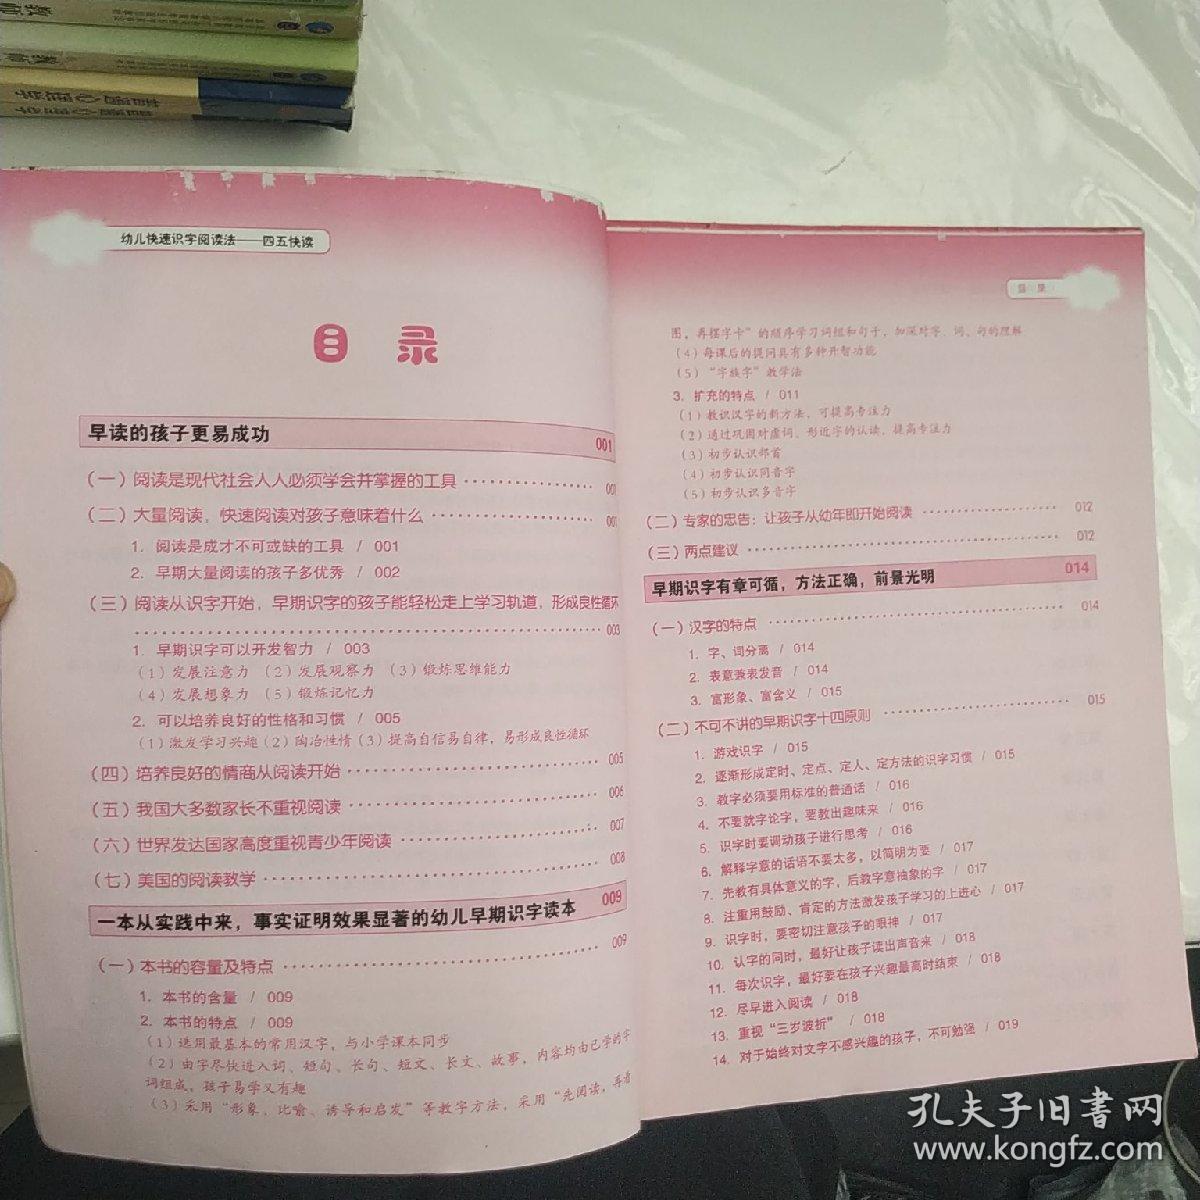 普通心理学
普通心理学
幼儿快速识字阅读法——四五快读
目 录
早读的孩子更易成功 001
（一）阅读是现代社会人人必须学会并掌握的工具 …… 001
（二）大量阅读，快速阅读对孩子意味着什么 …… 001
1. 阅读是成才不可或缺的工具 / 001
2. 早期大量阅读的孩子多优秀 / 002
（三）阅读从识字开始，早期识字的孩子能轻松走上学习轨道，形成良性循环
…… 003
1. 早期识字可以开发智力 / 003
（1）发展注意力 （2）发展观察力 （3）锻炼思维能力
（4）发展想象力 （5）锻炼记忆力
2. 可以培养良好的性格和习惯 / 005
（1）激发学习兴趣（2）陶冶性情（3）提高自信易自律，易形成良性循环
（四）培养良好的情商从阅读开始 …… 005
（五）我国大多数家长不重视阅读 …… 006
（六）世界发达国家高度重视青少年阅读 …… 007
（七）美国的阅读教学 …… 008
一本从实践中来，事实证明效果显著的幼儿早期识字读本 009
（一）本书的容量及特点 …… 009
1. 本书的含量 / 009
2. 本书的特点 / 009
（1）选用最基本的常用汉字，与小学课本同步
（2）由字尽快进入词、短句、长句、短文、长文、故事，内容均由已学的字
词组成，孩子易学又有趣
（3）采用“形象、比喻、诱导和启发”等教字方法，采用“先阅读，再看
目 录
图，再摆字卡”的顺序学习词组和句子，加深对字、词、句的理解
（4）每课后的提问具有多种开智功能
（5）“字族字”教学法
3. 扩充的特点 / 011
（1）教识汉字的新方法，可提高专注力
（2）通过巩固对虚词、形近字的认读，提高专注力
（3）初步认识部首
（4）初步认识同音字
（5）初步认识多音字
（二）专家的忠告：让孩子从幼年即开始阅读 …… 012
（三）两点建议 …… 012
早期识字有章可循，方法正确，前景光明 014
（一）汉字的特点 …… 014
1. 字、词分离 / 014
2. 表意兼表发音 / 014
3. 富形象、富含义 / 015
（二）不可不讲的早期识字十四原则 …… 015
1. 游戏识字 / 015
2. 逐渐形成定时、定点、定人、定方法的识字习惯 / 015
3. 教字必须要用标准的普通话 / 016
4. 不要就字论字，要教出趣味来 / 016
5. 识字时要调动孩子进行思考 / 016
6. 解释字意的话语不要太多，以简明为要 / 017
7. 先教有具体意义的字，后教字意抽象的字 / 017
8. 注重用鼓励、肯定的方法激发孩子学习的上进心 / 017
9. 识字时，要密切注意孩子的眼神 / 017
10. 认字的同时，最好让孩子读出声音来 / 018
11. 每次识字，最好要在孩子兴趣最高时结束 / 018
12. 尽早进入阅读 / 018
13. 重视“三岁波折” / 018
14. 对于始终对文字不感兴趣的孩子，不可勉强 / 019
孔夫子旧书网
www.kongfz.com